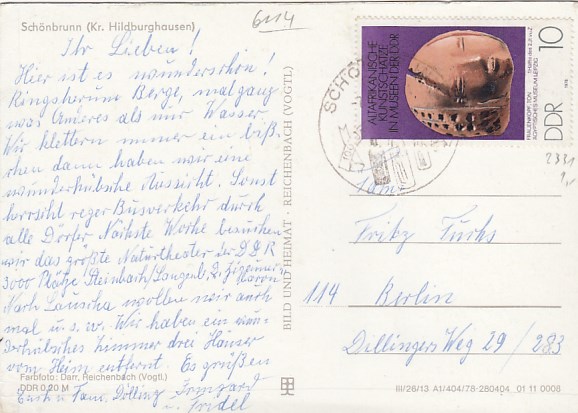 Schönbrunn (Kr. Hildburghausen)
6114
Ihr Lieben!
Hier ist es wunderschön!
Ringsherum Berge, mal ganz
was anderes als nur Wasser.
Wir klettern immer ein biß-
chen dann haben wir eine
wunderhübsche Aussicht. Sonst
herrscht reger Busverkehr durch
alle Dörfer. Nächste Woche besuchen
wir das größte Naturtheater der DDR
3000 Plätze Steinbach/Langenb. Zigeunerbaron
Nach Lauscha wollen wir auch
mal u.s.w. Wir haben ein wun-
derhübsches Zimmer drei Häuser
vom Heim entfernt. Es grüßen
Euch u. Fam. Dölling Irmgard
u. Fridel
Farbfoto: Darr, Reichenbach (Vogtl.)
DDR 0,20 M
BILD UND HEIMAT · REICHENBACH (VOGTL)
SCHÖ
ALTAFRIKANISCHE
KUNSTSCHÄTZE
IN MUSEEN DER DDR
FRAUENKOPF, TON
ÄGYPTISCHES MUSEUM LEIPZIG
DDR
10
2331
Fam.
Fritz Fuchs
114 Berlin
Dillinger Weg 29 / 283
III/26/13 A1/404/78-280404 01 11 0006